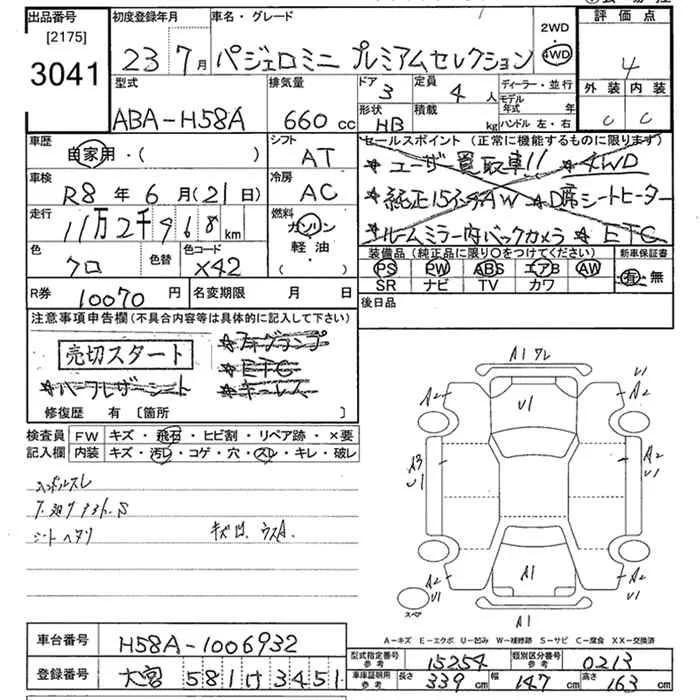 出品番号
[2175]
3041
初度登録年月
23 7月
車名・グレード
パジェロミニ プレミアムセレクション
2WD
4WD
評価点
4
外装 内装
C C
型式
ABA-H58A
排気量
660 cc
ドア
3
定員
4 人
形状
HB
積載
kg
ディーラー・並行
モデル年式 年
ハンドル 左・右
車歴
自家用・( )
シフト
AT
車検
R8年6月(21日)
冷房
AC
走行
11万2千968km
燃料
ガソリン
軽油・
( )
色
クロ
色替
色コード
X42
セールスポイント(正常に機能するものに限ります)
★ユーザー買取車!! ★4WD
★純正15インチAW ★D席シートヒーター
★ルームミラー内バックカメラ ★ETC
装備品(純正品に限り○をつけてください)
PS PW ABS エアB AW
SR ナビ TV カワ
新車保証書
有・無
R券 10070円
名変期限 月 日
後日品
注意事項申告欄(不具合内容等は具体的に記入して下さい)
売切スタート
★フォグランプ
★ETC
★ハーフレザーシート
★キーレス
修復歴 有 [箇所 ]
検査員
記入欄
FW キズ・飛石・ヒビ割・リペア跡・×要
内装 キズ・汚レ・コゲ・穴・スレ・キレ・破レ
シート ヘタリ
A1 ワレ
U1
A2
U1
A2
A3
U1
A2
A2
U1
A1
A1
A2
U1
スペア
A-キズ E-エクボ U-凹み W-補修跡 S-サビ C-腐食 XX-交換済
車台番号
H58A-1006932
登録番号
大宮 581 け 3451
型式指定番号
参考
15254
類別区分番号
参考
0213
車庫証明用
参考
長さ 339cm
幅 147cm
高さ 163cm